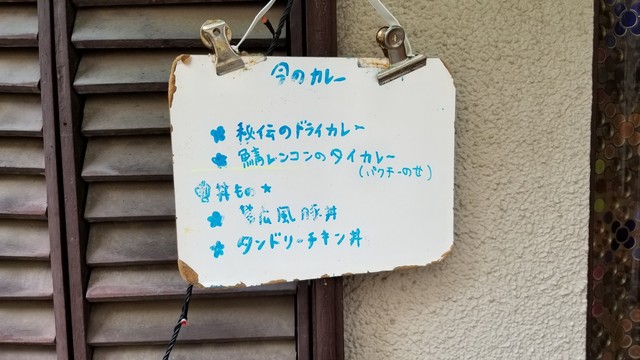 今のカレー
✽ 秘伝のドライカレー
✽ 鯖レンコンのタイカレー
(パクチーのせ)
丼もの★
✽ 風豚丼
✽ タンドリーチキン丼